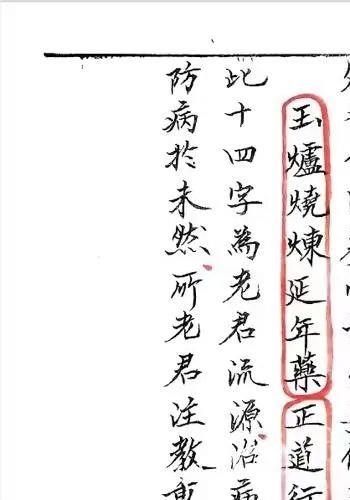 玉爐燒煉延年藥正道行
此十四字為老君流源治病
防病於未然所老君注教